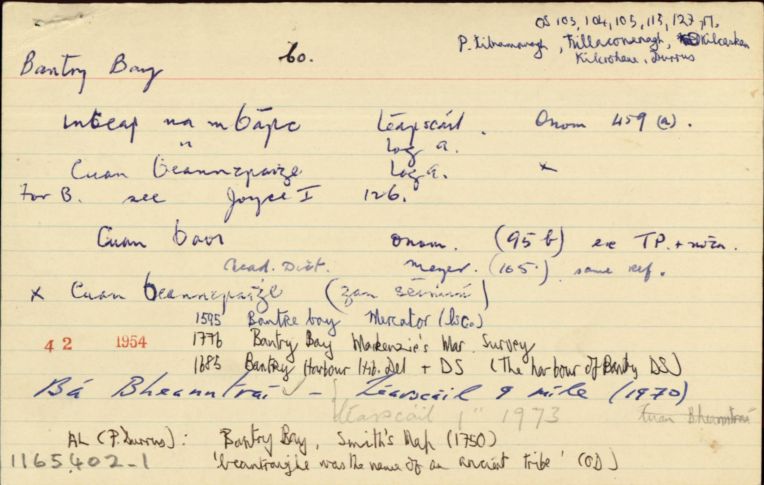 OS 103, 104, 105, 113, 127
P. Kilnamanagh, Killaconenagh, Kilcaskan
Kilcrohane, Durrus
Bantry Bay
Inbear na mbárc Léarscáil. Onom 459 (a).
" Log a.
Cuan beanntraige Log a. x
For B. see Joyce I 126.
Cuan baoi Onom. (95 b) exe TP.
Read. Dict. Meyer. (165) same ref.
x Cuan beanntraige (gan séimiú)
1595 Bantre bay Mercator
42 1954 1776 Bantry Bay Mackenzie's Mar. Survey
1685 Bantry Harbour Hib. Del + DS (The harbour of Banty DS)
Bá Bheanntraí – Léarscáil 9 míle (1970)
Léarscáil 1" 1973 Cuan Bheanntraí
AL (P. Durrus): Bantry Bay, Smith's Map (1750)
1165402-1 'beantraighe was the name of an ancient tribe' (OD)